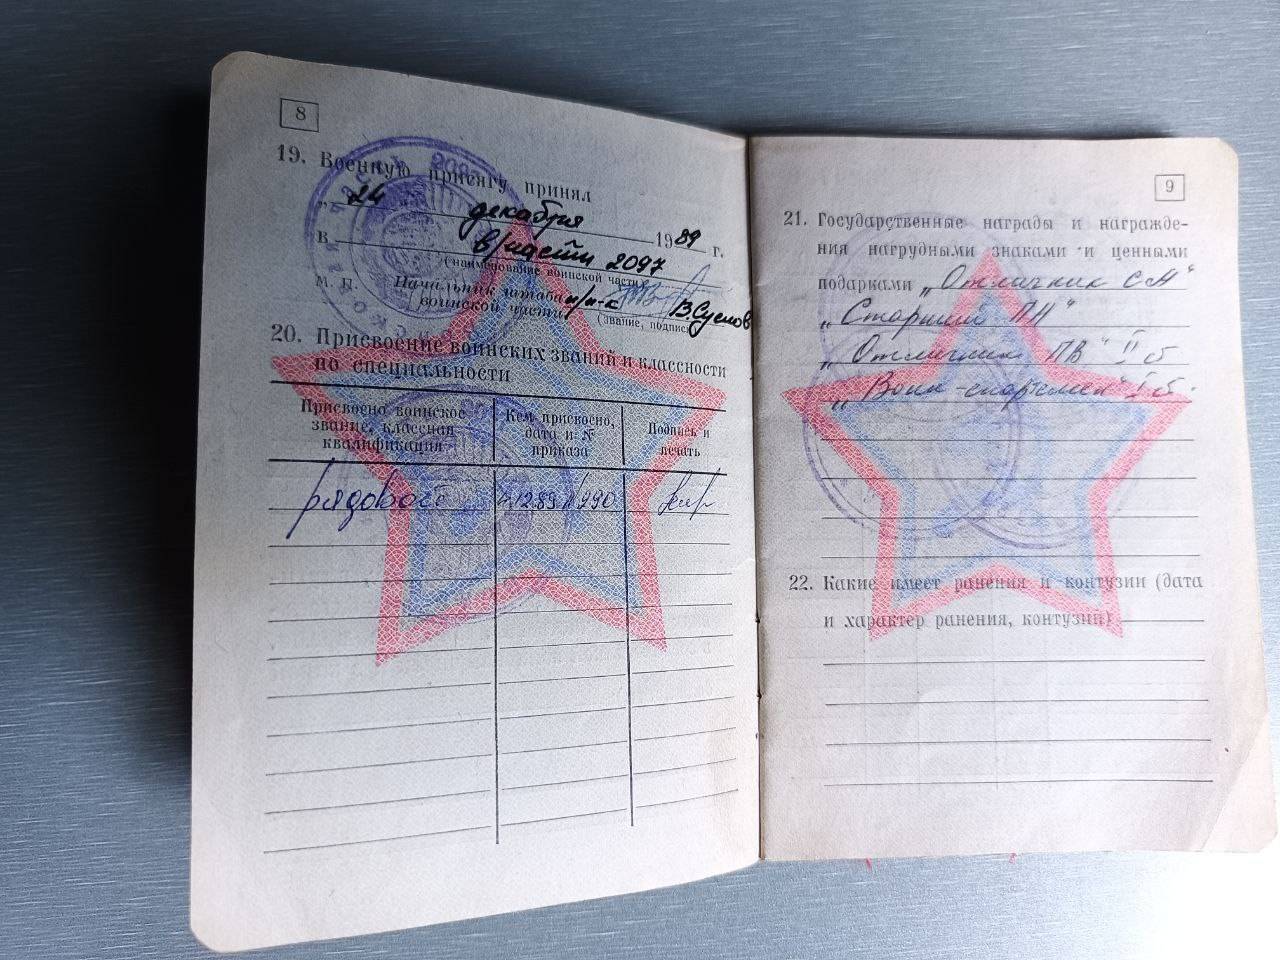 8
19. Военную присягу принял
„ 24 декабря 1989 г.
в в/части 2097
(наименование воинской части)
М. П. Начальник штаба п/п-к В.Суслов
воинской части (звание, подпись)
20. Присвоение воинских званий и классности
по специальности
Присвоено воинское звание, классная квалификация
Кем присвоено, дата и № приказа
Подпись и печать
рядовой
12.89 N 290
9
21. Государственные награды и награжде-
ния нагрудными знаками и ценными
подарками „Отличник СА"
„Старший ПН"
„Отличник ПВ" II б
„Воин-спортсмен" I б.
22. Какие имеет ранения и контузии (дата
и характер ранения, контузии)